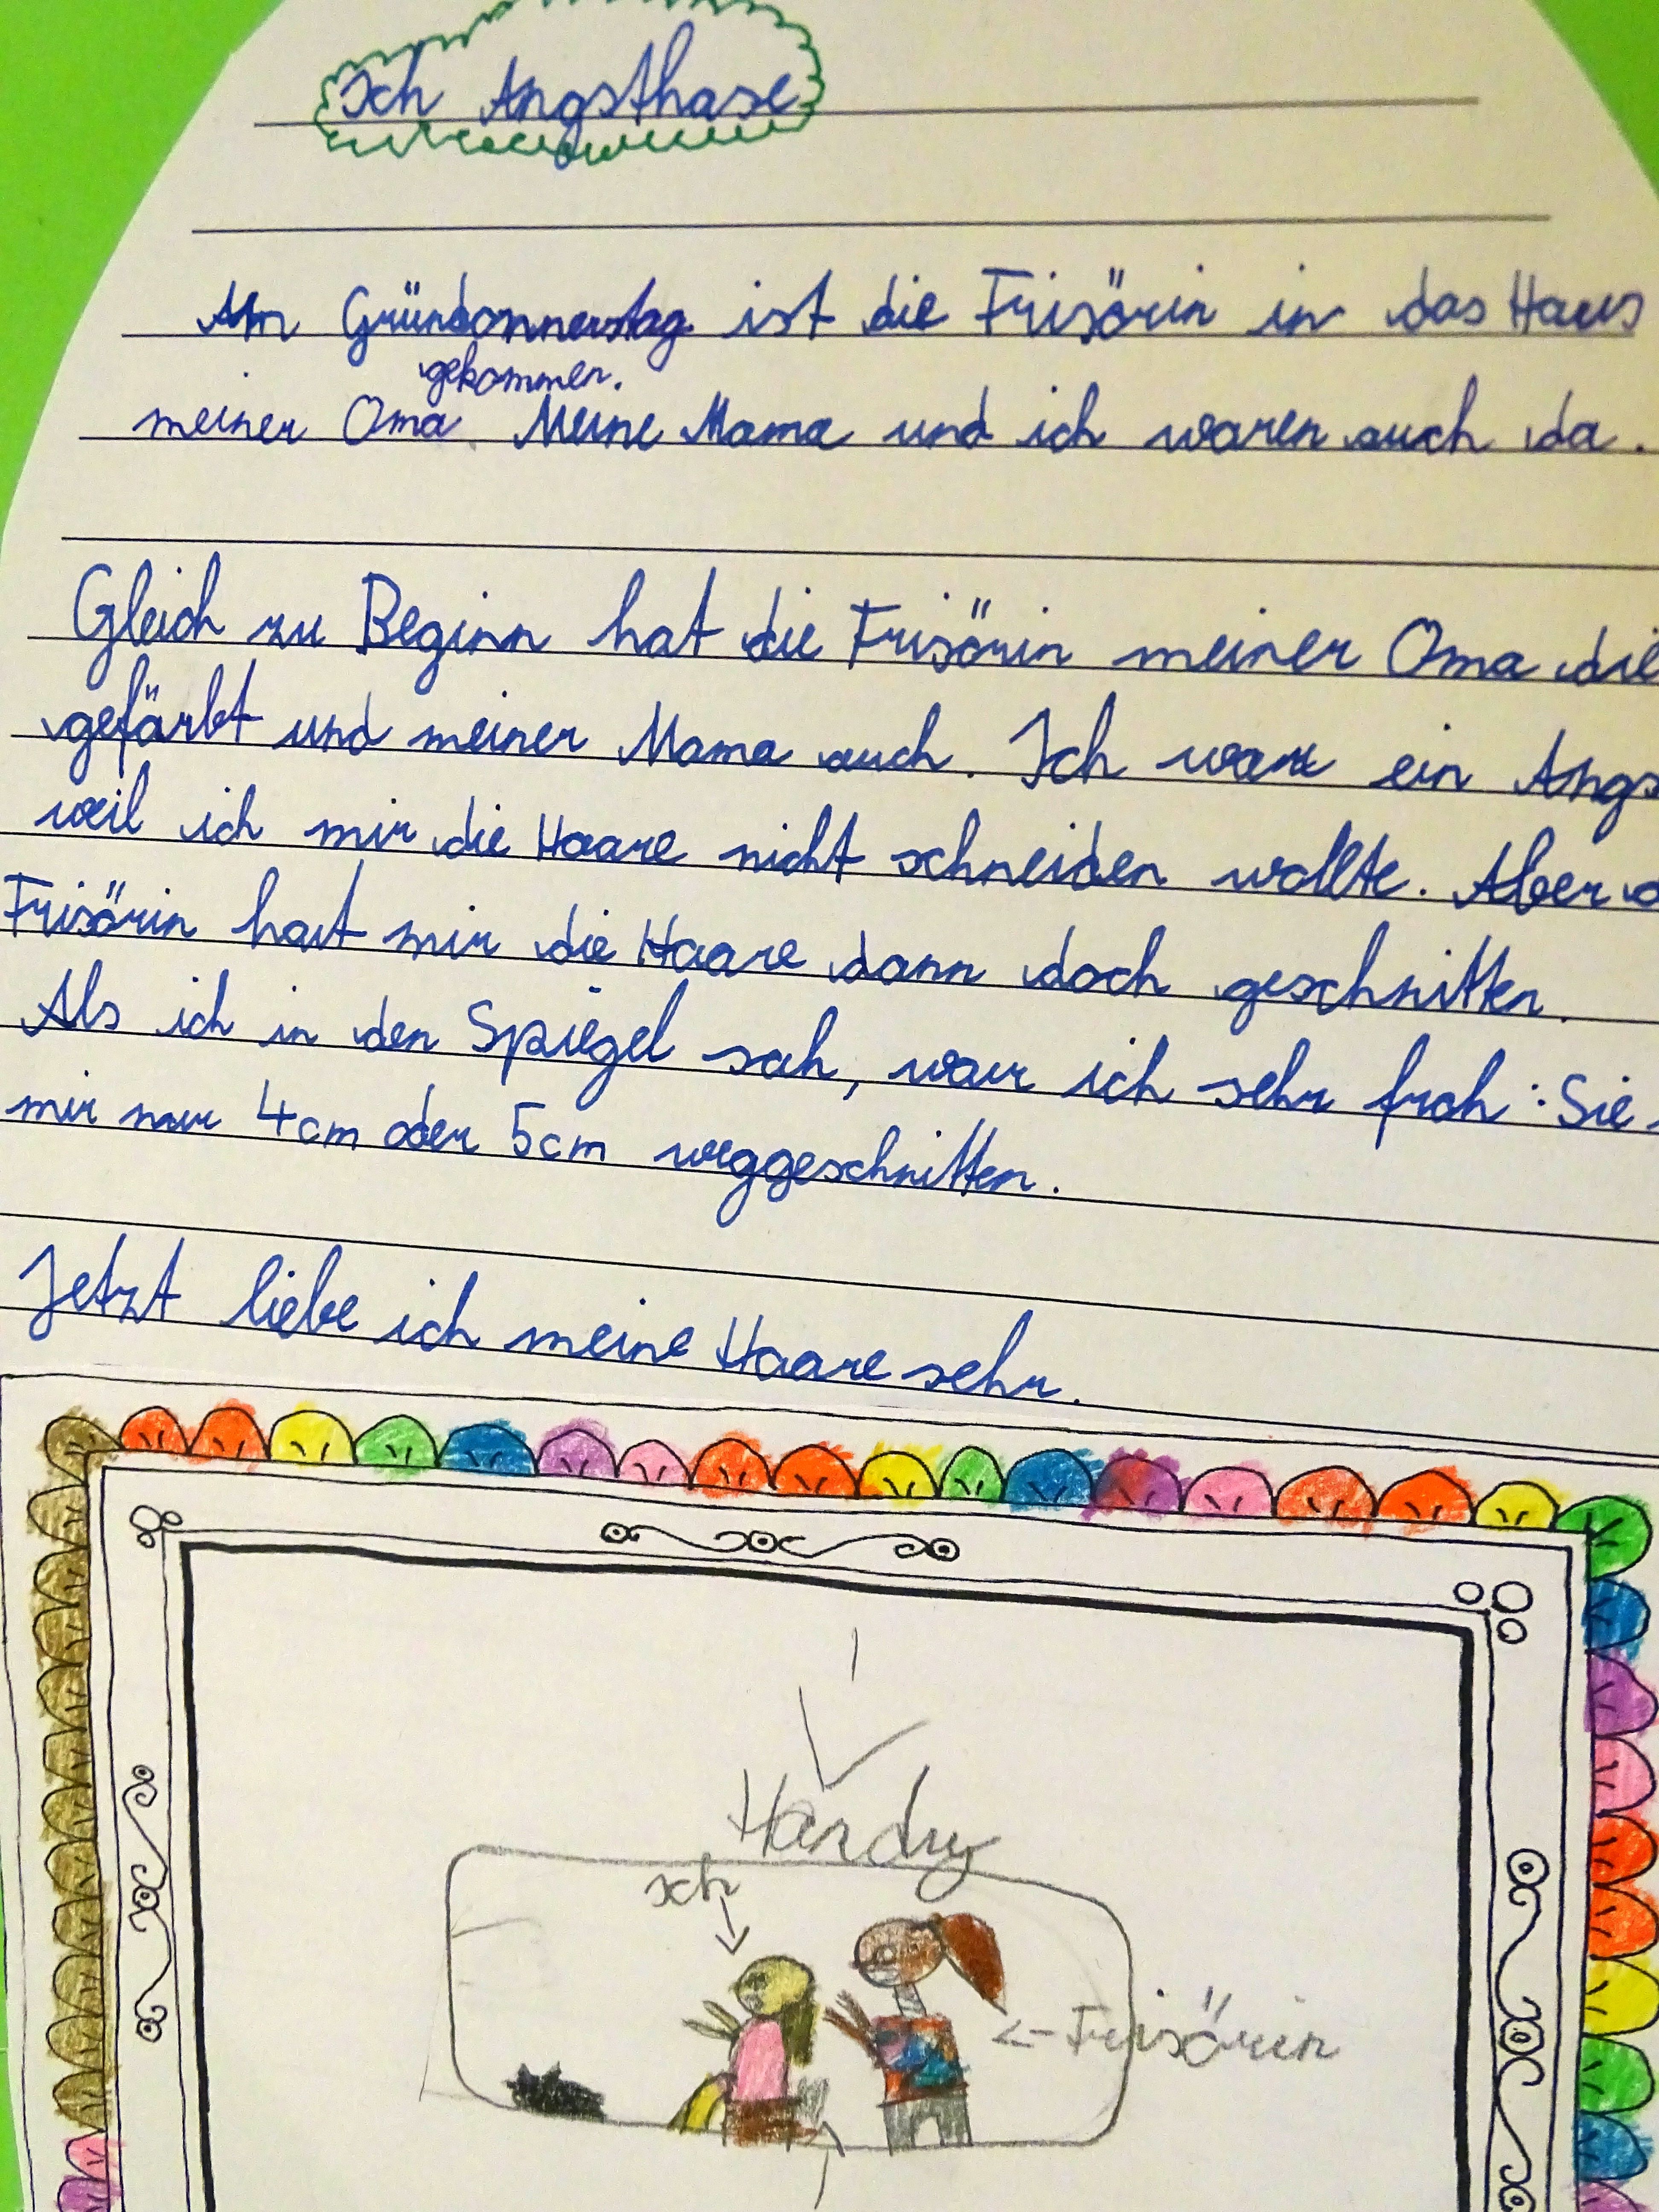 Ich Angsthase
Am Gründonnerstag ist die Frisörin in das Haus
gekommen.
meiner Oma Meine Mama und ich waren auch da.
Gleich zu Beginn hat die Frisörin meiner Oma die
gefärbt und meiner Mama auch. Ich war ein Angs
weil ich mir die Haare nicht schneiden wollte. Aber d
Frisörin hat mir die Haare dann doch geschnitten.
Als ich in den Spiegel sah, war ich sehr froh: Sie
mir nur 4cm oder 5cm weggeschnitten.
Jetzt liebe ich meine Haare sehr.
Handy
Ich
Frisörin